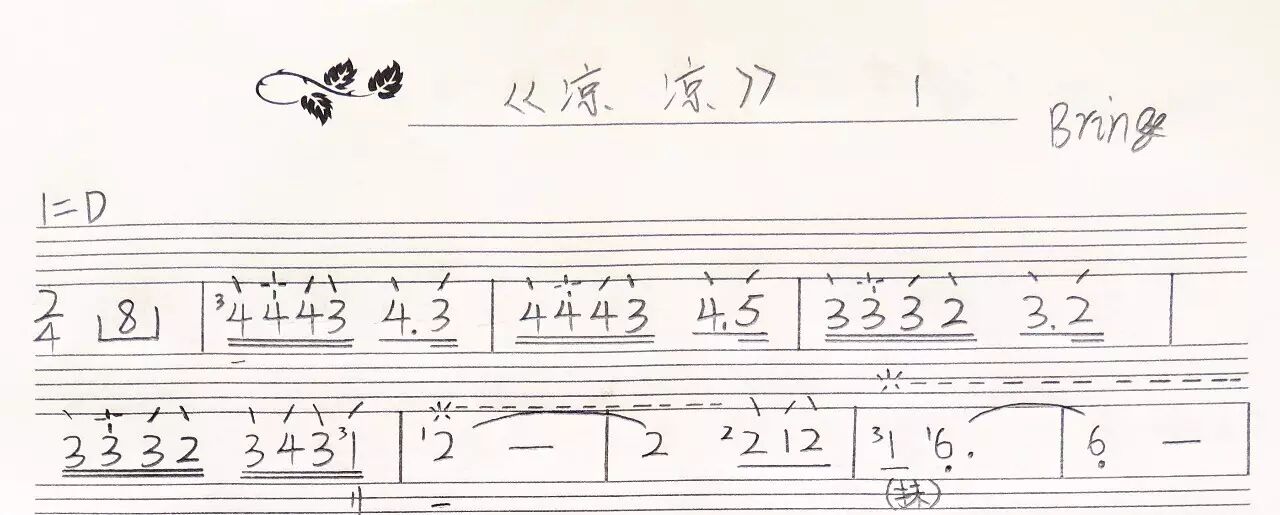 《凉凉》 1
Bring
1=D
2/4 8 | 3 4443 4.3 | 4443 4.5 | 3332 3.2 |
3332 343 3 1 | 1 2 — | 2 2 212 | 3 1 1 6. | 6 — |
(抹)